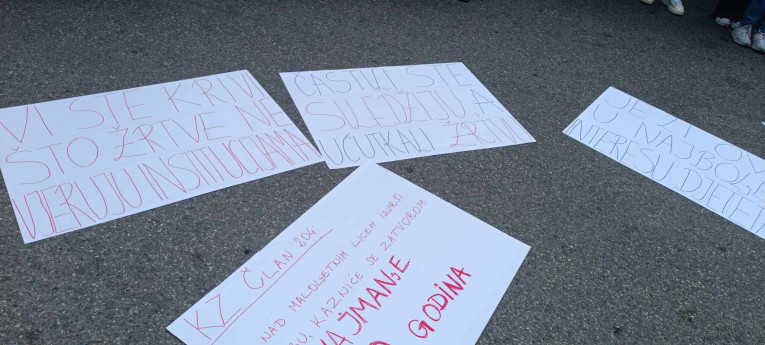 VI STE KRIVI
ŠTO ŽRTVE NE
VJERUJU INSTITUCIJAMA
ČASTILI STE
SILEDŽIJU A
UĆUTKALI ŽRTVU
JE
U NAJBOLJ
INTERESU DJETETA
KZ ČLAN 204.
NAD MALOLJETNIM LICEM IZVRŠI
KAZNIĆE SE ZATVOROM
NAJMANJE
GODINA